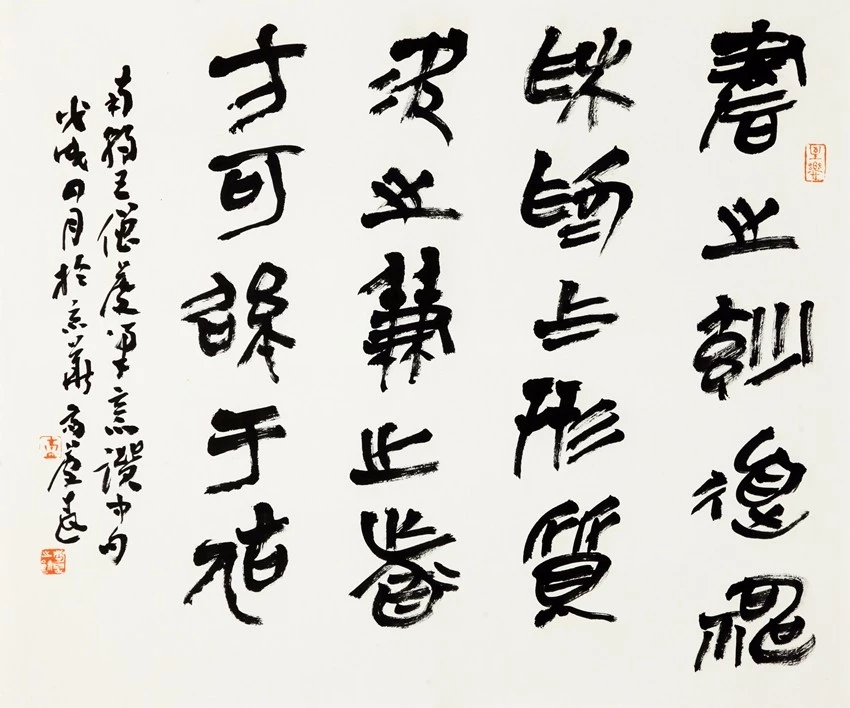 書之妙道神
彩為上形質
次之兼之者
方可紹于古人
南朝王僧虔筆意讚中句
戊戌四月於京華高慶